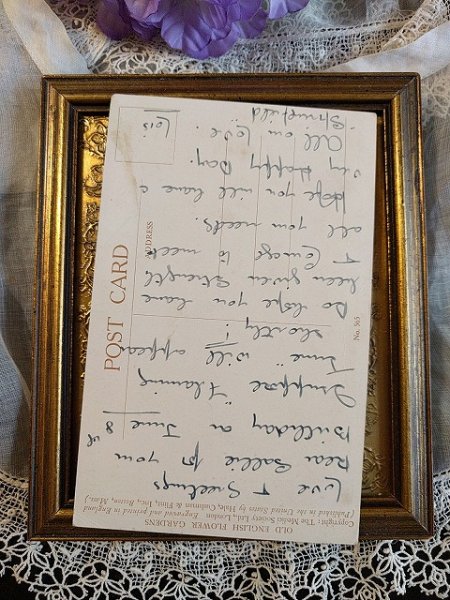 Love & Greetings
Dear Sallie for your
Birthday on June 8th
I suppose "Flaming
June" will appear
shortly!
Do hope you have
been given strength
& Courage to meet
all your needs.
Hope you will have a
very Happy Day.
All our Love.
Lois
POST CARD
ADDRESS
No. 365
OLD ENGLISH FLOWER GARDENS
Copyright: The Medici Society Ltd., London. Engraved and printed in England
(Published in the United States by Hale, Cushman & Flint, Inc., Boston, Mass.)